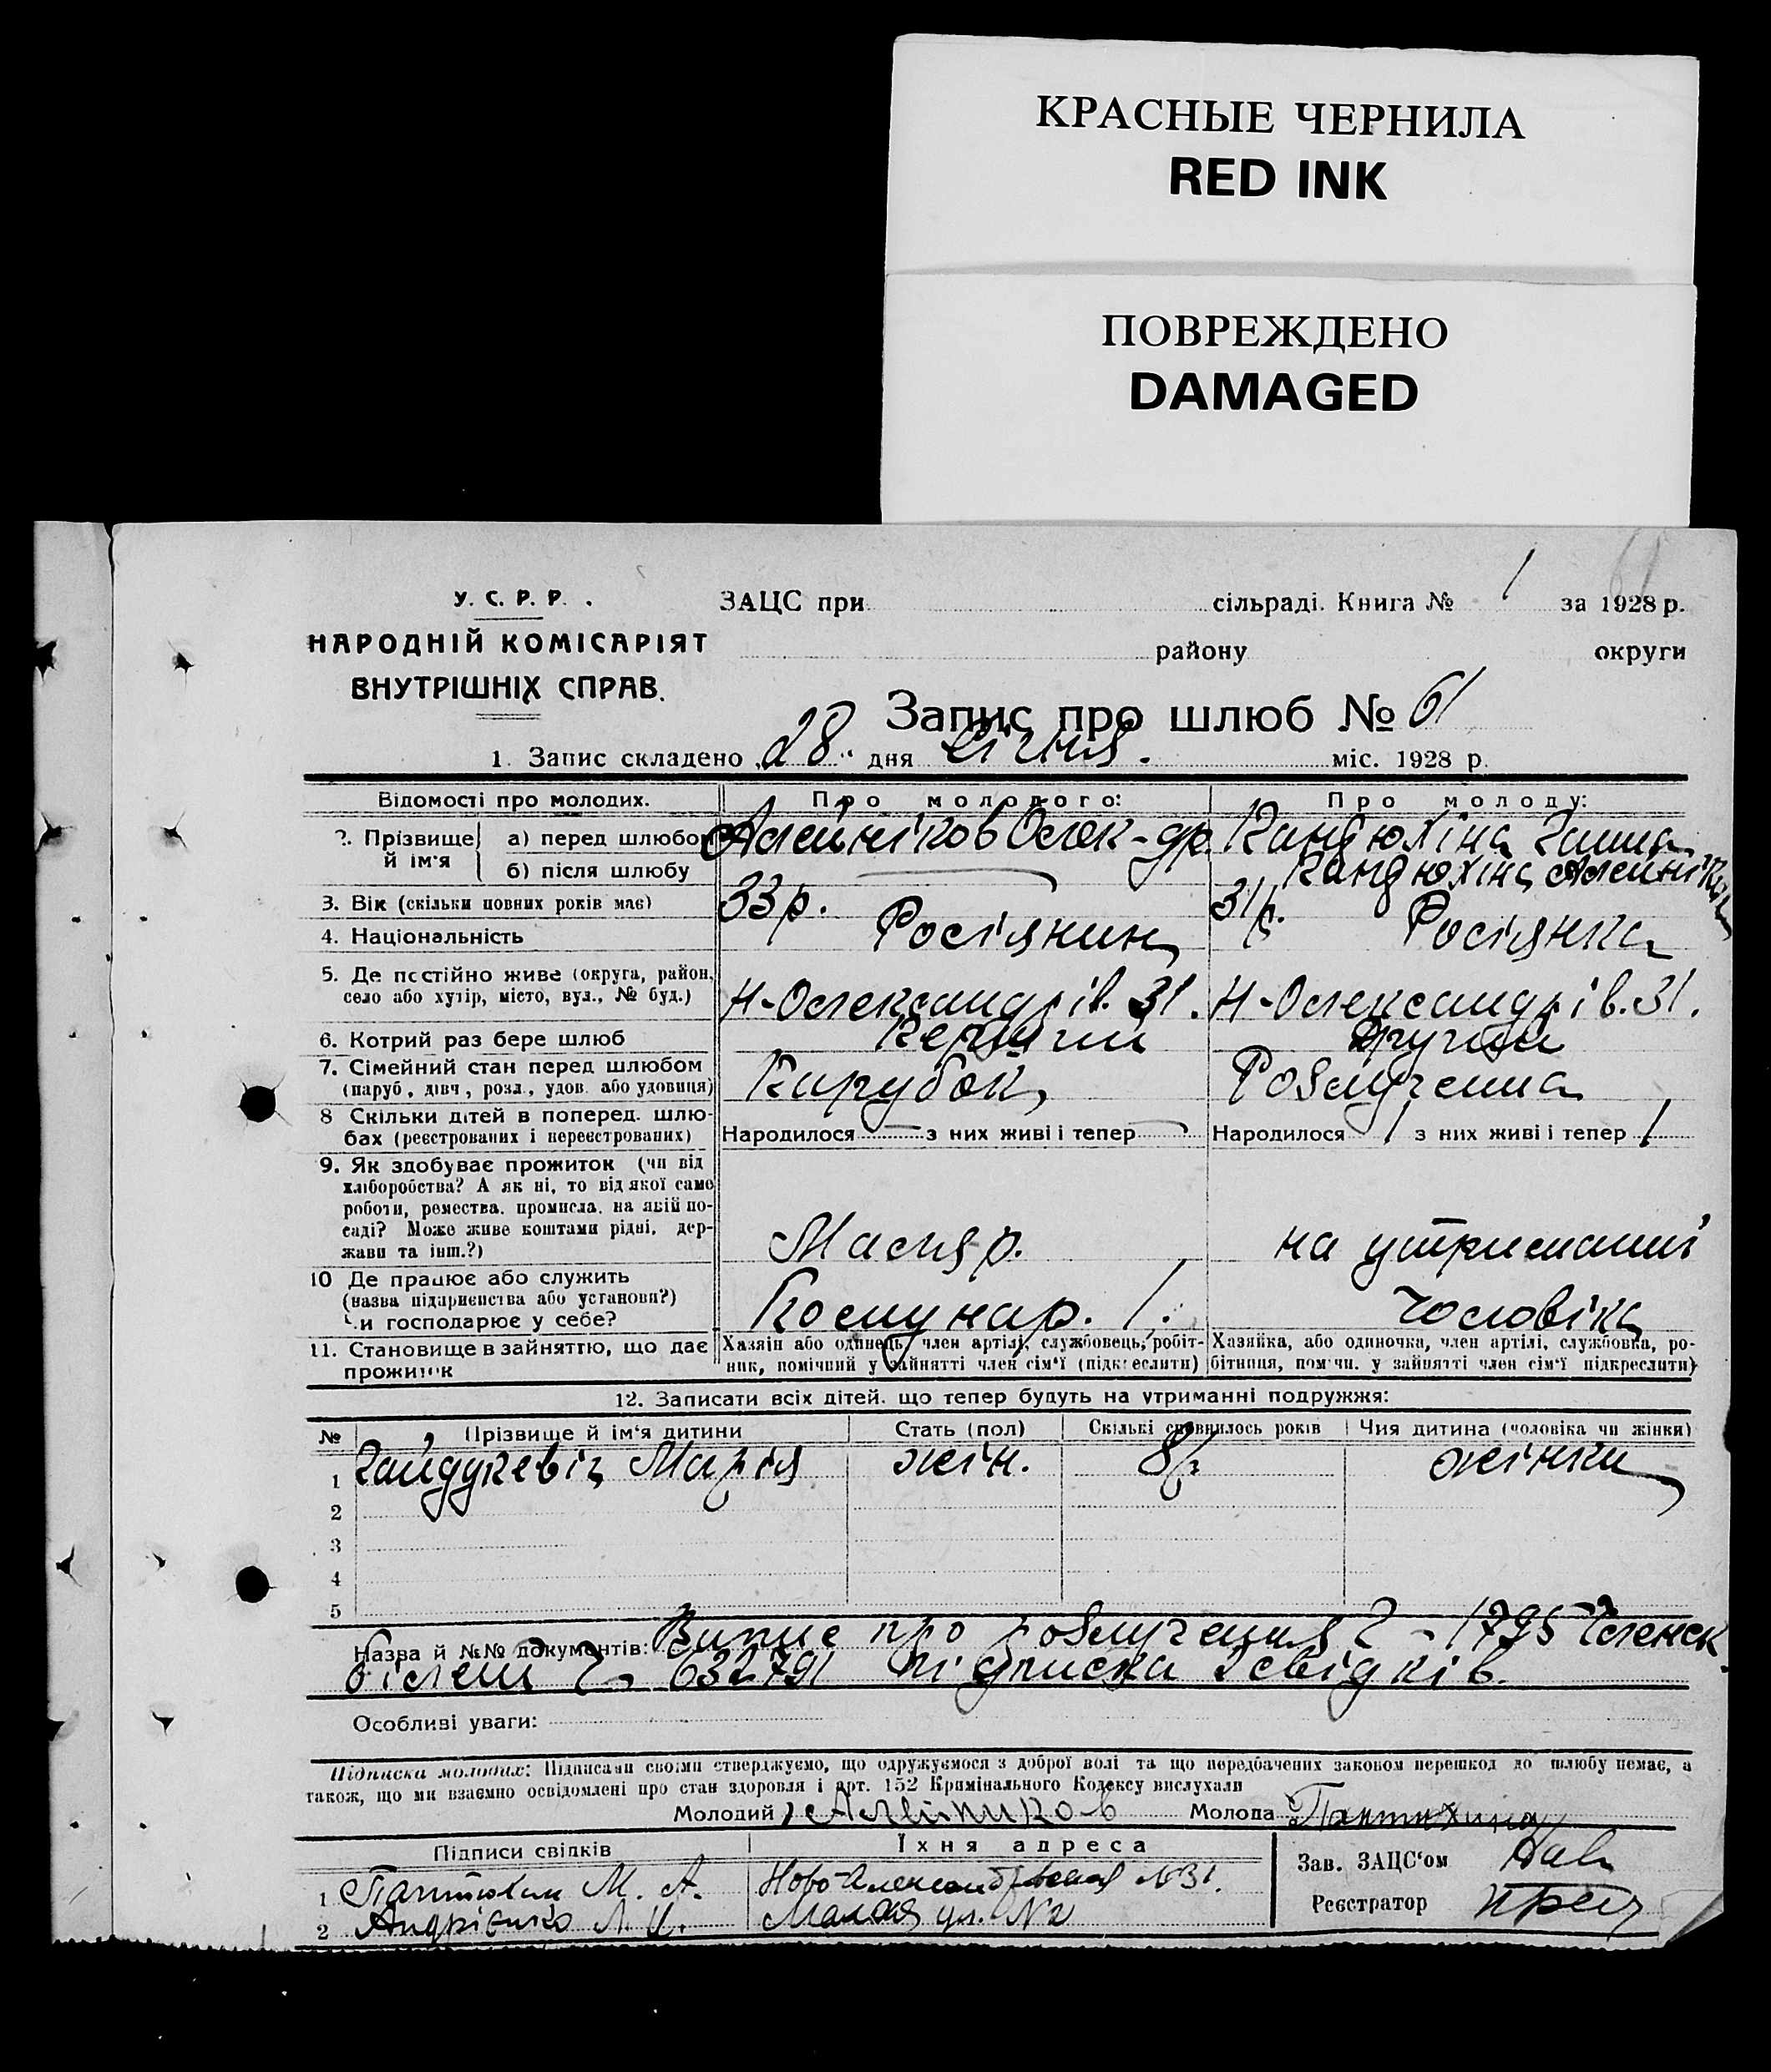 КРАСНЫЕ ЧЕРНИЛА
RED INK
ПОВРЕЖДЕНО
DAMAGED
У. С. Р. Р.
НАРОДНІЙ КОМІСАРІЯТ
ВНУТРІШНІХ СПРАВ.
ЗАЦС при сільраді. Книга № 1 за 1928 р.
району округи
Запис про шлюб № 61
1. Запис складено „28“ дня січня. міс. 1928 р.
Відомості про молодих. Про молодого: Про молоду:
2. Прізвище й ім'я а) перед шлюбом Алейніков Олек-др.
б) після шлюбу
3. Вік (скільки повних років має) 33 р. 31 р.
4. Національність Росіянин Росіянка
5. Де постійно живе (округа, район, село або хутір, місто, вул., № буд.) Н-Олександрів. 31. Н-Олександрів. 31.
6. Котрий раз бере шлюб Перший Другий
7. Сімейний стан перед шлюбом (паруб., дівч., розл., удов. або удовиця) Парубок Розлучена
8 Скільки дітей в поперед. шлюбах (реєстрованих і нереєстрованих) Народилося — з них живі і тепер — Народилося 1 з них живі і тепер 1
9. Як здобуває прожиток (чи від хліборобства? А як ні, то від якої само роботи, ремества, промисла, на якій посаді? Може живе коштами рідні, держави та інш.?) Маляр. на утриманні
10 Де працює або служить (назва підприємства або установи?) Чи господарює у себе? Комунар. 1. чоловіка
11. Становище в зайняттю, що дає прожиток Хазяін або одинець, член артілі, службовець, робітник, помічний у зайнятті член сім'ї (підкреслити) Хазяйка, або одиночка, член артілі, службовка, робітниця, помічн. у зайнятті член сім'ї підкреслити)
12. Записати всіх дітей, що тепер будуть на утриманні подружжя:
№ Прізвище й ім'я дитини Стать (пол) Скількі сповнилось років Чия дитина (чоловіка чи жінки)
1 Гайдукевіч Марія жін. 8 р. жінки
2
3
4
5
Назва й №№ документів: Випис про розлучення 1795 Членск.
білет 632791 підписка 2 свідків.
Особливі уваги:
Підписка молодих: Підписами своїми стверджуємо, що одружуємося з доброї волі та що передбачених законом перешкод до шлюбу немає, а
також, що ми взаємно освідомлені про стан здоровля і арт. 152 Кримінального Кодексу вислухали
Молодий Алейников Молода Пантюхина
Підписи свідків Їхня адреса Зав. ЗАЦС'ом
1 Пантюхин М. А. Ново Александровская №31.
Реєстратор
2 Андрієнко Л. И. Малая ул. №2